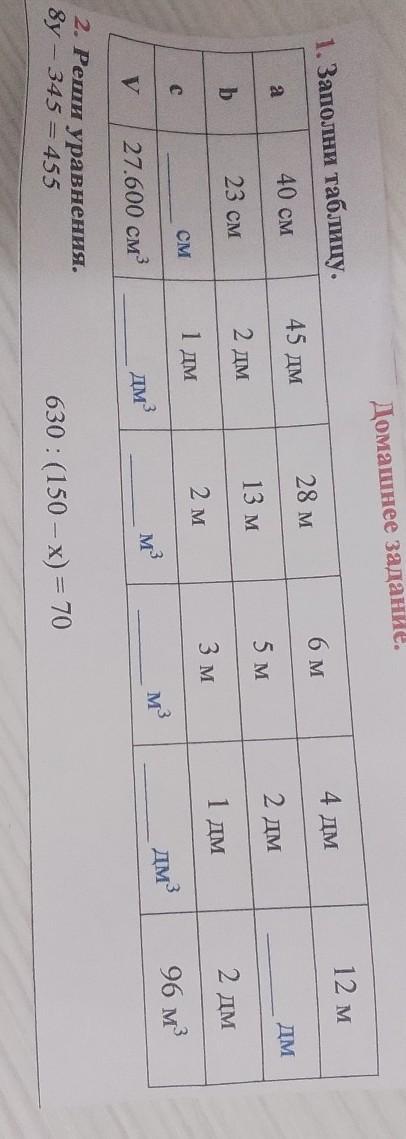 Домашнее задание.
1. Заполни таблицу.
a 40 см 45 дм 28 м 6 м 4 дм 12 м
b 23 см 2 дм 13 м 5 м 2 дм ____ дм
c ____ см 1 дм 2 м 3 м 1 дм 2 дм
V 27.600 см³ ____ дм³ ____ м³ ____ м³ ____ дм³ 96 м³
2. Реши уравнения.
8y – 345 = 455 630 : (150 – x) = 70